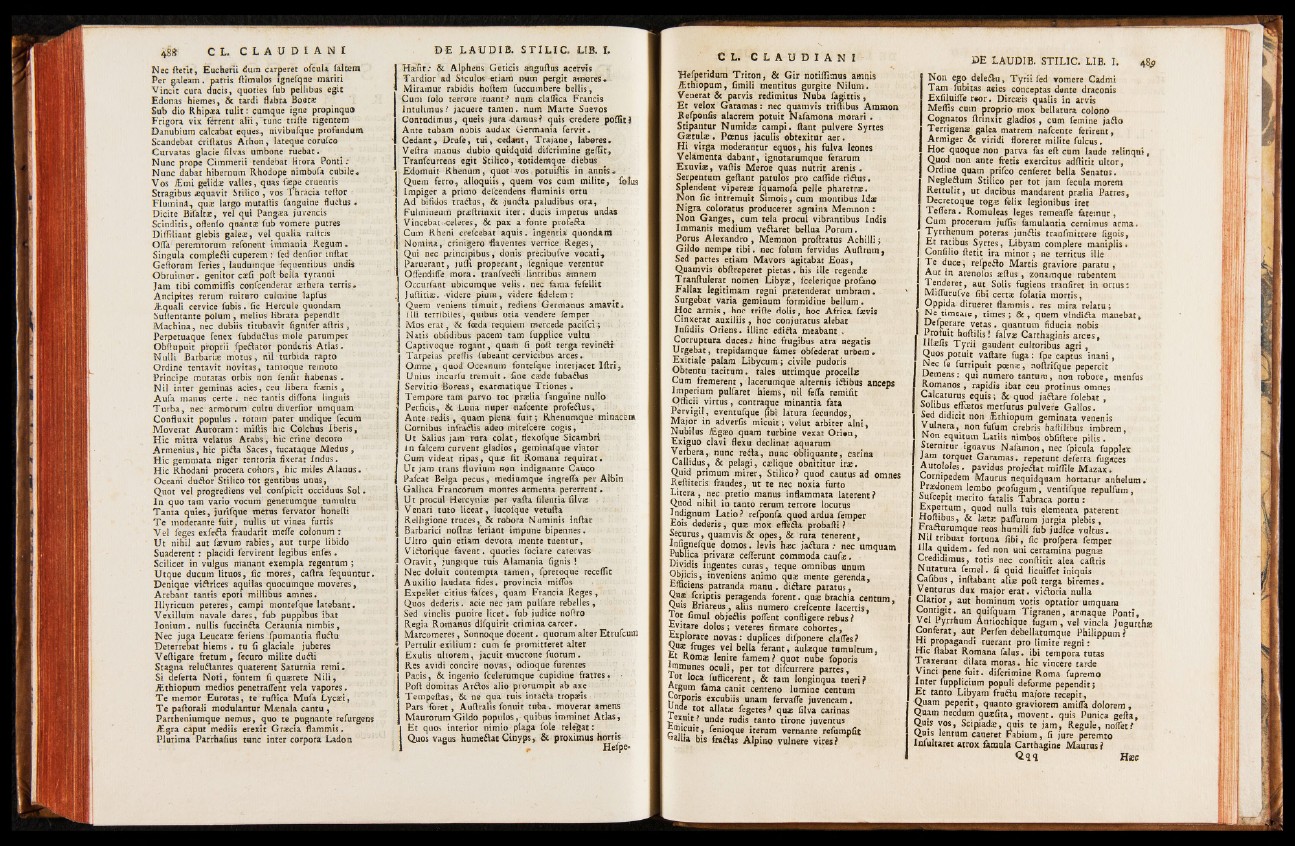 488 CL. CLAUDIANI
Nec ſtetit, Eucherii dum carperet oſcula ſaltem
Per galeam. patris ſtimulos igneſque mariti
Vincit cura ducis, quoties ſub pellibus egit
Edonas hiemes, & tardi flabra Bootæ
Sub dio Rhipæa tulit: cumque igne propinquo
Frigora vix ferrent alii, tunc triſte rigentem
Danubium calcabat eques, nivibuſque profundum
Scandebat criſtatus Athon, lateque coruſco
Curvatas glacie ſilvas umbone ruebat.
Nunc prope Cimmerii tendebat litora Ponti:
Nunc dabat hibernum Rhodope nimboſa cubile.
Vos Æmi gelidæ valles, quas ſæpe cruentis
Stragibus æquavit Stilico, vos Thracia teſtor
Flumina, quæ largo mutaſtis ſanguine fluctus.
Dicite Biſaltæ, vel qui Pangæa juvencis
Scinditis, offenſo quantæ ſub vomere putres
Diſſiliant glebis galeæ, vel qualia raſtris
Oſſa peremtorum reſonent immania Regum.
Singula complecti cuperem: ſed denſior inſtat
Geſtorum ſeries, laudumque ſequentibus undis
Obruimur. genitor cæſi poſt bella tyranni
Jam tibi commiſſis conſcenderat æthera terris.
Ancipites rerum ruituro culmine lapſus
Æquali cervice ſubis. ſic Hercule quondam
Suſtentante polum, melius librata pependit
Machina, nec dubiis titubavit ſignifer aſtris,
Perpetuaque ſenex ſubductus mole parumper
Obſtupuit proprii ſpectator ponderis Atlas.
Nulli Barbariæ motus, nil turbida rapto
Ordine tentavit novitas, tantoque remoto
Principe mutatas orbis non ſenſit habenas.
Nil inter geminas acies, ceu libera frænis,
Auſa manus certe. nec tantis diſſona linguis
Turba, nec armorum cultu diverſior umquam
Confluxit populus. totam pater undique ſecum
Moverat Auroram: miſtis hic Colchus Iberis,
Hic mitra velatus Arabs, hic crine decoro
Armenius, hic picta Saces, fucataque Medus,
Hic gemmata niger tentoria fixerat Indus.
Hic Rhodani procera cohors, hic miles Alanus.
Oceani ductor Stilico tot gentibus unus,
Quot vel progrediens vel conſpicit occiduus Sol.
In quo tam vario vocum generumque tumultu
Tanta quies, juriſque metus ſervator honeſti
Te moderante fuit, nullis ut vinea furtis
Vel ſeges exſecta fraudarit meſſe colonum:
Ut nihil aut ſævum rabies, aut turpe libido
Suaderent: placidi ſervirent legibus enſes.
Scilicet in vulgus manant exempla regentum;
Utque ducum lituos, ſic mores, caſtra ſequuntur.
Denique victrices aquilas quocumque moveres,
Arebant tantis epoti millibus amnes.
Illyricum peteres, campi monteſque latebant.
Vexillum navale dares, ſub puppibus ibat
Ionium. nullis ſuccincta Ceraunia nimbis,
Nec juga Leucatæ feriens ſpumantia fluctu
Deterrebat hiems. tu ſi glaciale juberes
Veſtigare fretum, ſecuro milite ducti
Stagna reluctantes quaterent Saturnia remi.
Si deſerta Noti, fontem ſi quærere Nili,
Æthiopum medios penetraſſent vela vapores.
Te memor Eurotas, te ruſtica Muſa Lycæi,
Te paſtorali modulantur Mænala cantu,
Partheniumque nemus, quo te pugnante reſurgens
Ægra caput mediis erexit Græcia flammis.
Plurima Parrhaſius tunc inter corpora Ladon
DE LAUDIB. STILIC. LIB. I.
Hæſit: & Alpheus Geticis anguſtus acervis
Tardior ad Siculos etiam num pergit amores.
Miramur rabidis hoſtem ſuccumbere bellis,
Cum ſolo terrore ruant? num claſſica Francis
Intulimus? jacuere tamen. num Marte Suevos
Contudimus, queis jura damus? quis credere poſſit?
Ante tubam nobis audax Germania ſervit.
Cedant, Druſe, tui, cedant, Trajane, labores.
Veſtra manus dubio quidquid diſcrimine geſſit,
Tranſcurrens egit Stilico, totidemque diebus
Edomuit Rhenum, quot vos potuiſtis in annis.
Quem ferro, alloquiis, quem vos cum milite, ſolus
Impiger a primo deſcendens fluminis ortu
Ad bifidos tractus, & juncta paludibus ora,
Fulmineum præſtrinxit iter. ducis impetus undas
Vincebat celeres, & pax a fonte profecta
Cum Rheni creſcebat aquis. ingentia quondam
Nomina, crinigero flaventes vertice Reges,
Qui nec principibus, donis precibuſve vocati,
Paruerant, juſſi properant, ſegnique verentur
Offendiſſe mora. tranſvecti lintribus amnem
Occurſant ubicumque velis. nec fama fefellit
Juſtitiæ. videre pium, videre fidelem:
Quem veniens timuit, rediens Germanus amavit.
Illi terribiles, quibus otia vendere ſemper
Mos erat, & fœda requiem mercede paciſci;
Natis obſidibus pacem tam ſupplice vultu
Captivoque rogant, quam ſi poſt terga revincti
Tarpeias preſſis ſubeant cervicibus arces.
Omne, quod Oceanum fonteſque interjacet Iſtri,
Unius incurſu tremuit. ſine cæde ſubactus
Servitio Boreas, exarmatique Triones.
Tempore tam parvo toc prælia ſanguine nullo
Perficis, & Luna nuper naſcente profectus,
Ante redis, quam plena fuit; Rhenumque minacem
Cornibus infractis adeo miteſcere cogis,
Ut Salius jam rura colat, flexoſque Sicambri
In falcem curvent gladios, geminaſque viator
Cum videat ripas, quæ ſit Romana requirat.
Ut jam trans fluvium non indignante Cauco
Paſcat Belga pecus, mediumque ingreſſa per Albin
Gallica Francorum montes armenta pererrent.
Ut procul Hercyniæ per vaſta ſilentia ſilvæ
Venari tuto liceat, lucoſque vetuſta
Relligione truces, & robora Numinis inſtar
Barbarici noſtræ feriant impune bipennes.
Ultro quin etiam devota mente tuentur,
Victorique favent. quoties ſociare catervas
Oravit, jungique tuis Alamania ſignis!
Nec doluit contempta tamen, ſpretoque receſſit
Auxilio laudata fides. provincia miſſos
Expellet citius faſces, quam Francia Reges,
Quos dederis. acie nec jam pulſare rebelles,
Sed vinclis punire licet. ſub judice noſtro
Regia Romanus diſquirit crimina carcer.
Marcomeres, Sonnoque docent. quorum alter Etruſcum
Pertulit exilium: cum ſe promitteret alter
Exulis ultorem, jacuit mucrone ſuorum.
Res avidi concire novas, odioque furentes
Pacis, & ingenio ſcelerumque cupidine fratres.
Poſt domitas Arctos alio prorumpit ab axe
Tempeſtas, & ne qua tuis intacta tropæis
Pars foret, Auſtralis ſonuit tuba. moverat amens
Maurorum Gildo populos, quibus imminet Atlas,
Et quos interior nimio plaga ſole relegat:
Quos vagus humectat Cinyps, & proximus hortis
Heſpe-
CL. CLAUDIANI
Heſperidum Triton, & Gir notiſſimus amnis
Æthiopum, ſimili mentitus gurgite Nilum.
Venerat & parvis redimitus Nuba ſagittis,
Et velox Garamas: nec quamvis triſtibus Ammon
Reſponſis alacrem potuit Naſamona morari.
Stipantur Numidæ campi. ſtant pulvere Syrtes
Gætulæ. Pœnus jaculis obtexitur aer.
Hi virga moderantur equos, his fulva leones
Velamenta dabant, ignotarumque ferarum
Exuviæ, vaſtis Meroe quas nutrit arenis.
Serpentum geſtant patulos pro caſſide rictus.
Splendent vipereæ ſquamoſa pelle pharetræ.
Non ſic intremuit Simois, cum montibus Idæ
Nigra coloratus produceret agmina Memnon:
Non Ganges, cum tela procul vibrantibus Indis
Immanis medium vectaret bellua Porum.
Porus Alexandro, Memnon proſtratus Achilli;
Gildo nempe tibi. nec ſolum fervidus Auſtrum,
Sed partes etiam Mavors agitabat Eoas,
Quamvis obſtreperet pietas. his ille regendæ
Tranſtulerat nomen Libyæ, ſcelerique profano
Fallax legitimam regni prætenderat umbram.
Surgebat varia geminum formidine bellum.
Hoc armis, hoc triſte dolis, hoc Africa ſævis
Cinxerat auxiliis, hoc conjuratus alebat
Inſidiis Oriens. illinc edicta meabant
Corruptura duces: hinc frugibus atra negatis
Urgebat, trepidamque fames obſederat urbem.
Exitiale palam Libycum; civile pudoris
Obtentu tacitum. tales utrimque procellæ
Cum fremerent, lacerumque alternis ictibus anceps
Imperium pulſaret hiems, nil feſſa remiſit
Officii virtus, contraque minantia fata
Pervigil, eventuſque ſibi latura ſecundos,
Major in adverſis micuit; velut arbiter alni,
Nubilus Ægæo quam turbine vexat Orion,
Exiguo clavi flexu declinat aquarum
Verbera, nunc recta, nunc obliquante, carina
Callidus, & pelagi, cælique obnititur iræ.
Quid primum mirer, Stilico? quod cautus ad omnes
Reſtiteris fraudes, ut te nec noxia furto
Litera, nec pretio manus inflammata lateret?
Quod nihil in tanto rerum terrore locutus
Indignum Latio? reſponſa quod ardua ſemper
Eois dederis, quæ mox effecta probaſti?
Securus, quamvis & opes, & rura tenerent,
Inſigneſque domos. levis hæc jactura: nec umquam
Publica privatæ ceſſerunt commoda cauſæ.
Dividis ingentes curas, teque omnibus unum
Objicis, inveniens animo quæ mente gerenda,
Efficiens patranda manu. dictare paratus,
Quæ ſcriptis peragenda forent. quæ brachia centum,
Quis Briareus, aliis numero creſcente lacertis,
Tot ſimul objectis poſſent confligere rebus?
Evitare dolos; veteres firmare cohortes,
Explorare novas: duplices diſponere claſſes?
Quæ fruges vel bella ferant, aulæque tumultum,
Et Romæ lenire famem? quot nube ſoporis
Immunes oculi, per tot diſcurrere partes,
Tot loca ſufficerent, & tam longinqua tueri?
Argum fama canit centeno lumine centum
Corporis excubiis unam ſervaſſe juvencam.
Unde tot allatæ ſegetes? quæ ſilva carinas
Texuit? unde rudis tanto tirone juventus
Emicuit, ſenioque iterum vernante reſumpſit
Gallia bis fractas Alpino vulnere vires?
DE LAUDIB. STILIC. LIB. I. 489
Non ego delectu, Tyrii ſed vomere Cadmi
Tam ſubitas acies conceptas dente draconis
Exſiluiſſe reor. Dircæis qualis in arvis
Meſſis cum proprio mox bellatura colono
Cognatos ſtrinxit gladios, cum ſemine jacto
Terrigenæ galea matrem naſcente ferirent,
Armiger & viridi floreret milite ſulcus.
Hoc quoque non parva fas eſt cum laude relinqui,
Quod non ante fretis exercitus adſtitit ultor,
Ordine quam priſco cenſeret bella Senatus.
Neglectum Stilico per tot jam ſecula morem
Rettulit, ut ducibus mandarent prælia Patres,
Decretoque togæ felix legionibus iret
Teſſera. Romuleas leges remeaſſe fatemur,
Cum procerum juſſis famulantia cernimus arma.
Tyrrhenum poteras junctis tranſmittere ſignis,
Et ratibus Syrtes, Libyam complere maniplis.
Conſilio ſtetit ira minor; ne territus ille
Te duce, reſpecto Martis graviore paratu,
Aut in arenoſos æſtus, zonamque rubentem
Tenderet, aut Solis fugiens tranſiret in ortus:
Miſſuruſve ſibi certæ ſolatia mortis,
Oppida dirueret flammis. res mira relatu;
Ne timeare, times; &, quem vindicta manebat,
Deſperare vetas. quantum fiducia nobis
Profuit hoſtilis! ſalvæ Carthaginis arces,
Illæſis Tyrii gaudent cultoribus agri,
Quos potuit vaſtare fuga: ſpe captus inani,
Nec ſe ſurripuit pœnæ, noſtriſque pepercit
Demens: qui numero tantum, non robore, menſus
Romanos, rapidis ibat ceu protinus omnes
Calcaturus equis; & quod jactare ſolebat,
Solibus effœtos merſurus pulvere Gallos.
Sed didicit non Æthiopum geminata venenis
Vulnera, non fuſum crebris haſtilibus imbrem,
Non equitum Latiis nimbos obſiſtere pilis.
Sternitur ignavus Naſamon, nec ſpicula ſupplex
Jam torquet Garamas. repetunt deſerta fugaces
Autololes. pavidus projectat miſſile Mazax.
Cornipedem Maurus nequidquam hortatur anhelum.
Prædonem lembo profugum, ventiſque repulſum,
Suſcepit merito fatalis Tabraca portu:
Expertum, quod nulla tuis elementa paterent
Hoſtibus, & lætæ paſſurum jurgia plebis,
Fracturumque reos humili ſub judice vultus.
Nil tribuat fortuna ſibi, ſic proſpera ſemper
Illa quidem. ſed non uni certamina pugnæ
Credidimus, totis nec conſtitit alea caſtris
Nutatura ſemel. ſi quid licuiſſet iniquis
Caſibus, inſtabant aliæ poſt terga biremes.
Venturus dux major erat. victoria nulla
Clarior, aut hominum votis optatior umquam
Contigit. an quiſquam Tigranen, armaque Ponti,
Vel Pyrrhum Antiochique fugam, vel vincla Jugurthæ
Conferat, aut Perſen debellatumque Philippum?
Hi propagandi ruerant pro limite regni:
Hic ſtabat Romana ſalus. ibi tempora tutas
Traxerunt dilata moras. hic vincere tarde
Vinci pene fuit. diſcrimine Roma ſupremo
Inter ſupplicium populi deforme pependit;
Et tanto Libyam fructu majore recepit,
Quam peperit, quanto graviorem amiſſa dolorem,
Quam necdum quæſita, movent. quis Punica geſta,
Quis vos, Scipiadæ, quis te jam, Regule, noſſet?
Quis lentum caneret Fabium, ſi jure peremto
Inſultaret atrox famula Carthagine Maurus?
Qqq Hæc